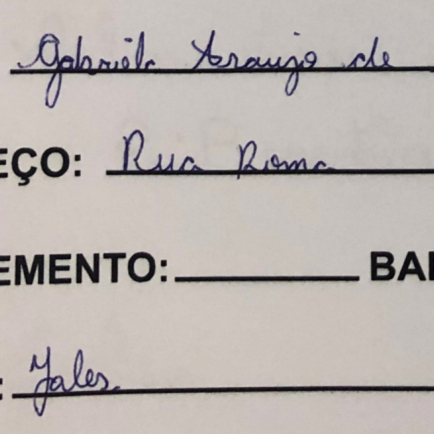 Gabriela Araujo de
EÇO: Rua Roma
EMENTO: BAI
: Jales